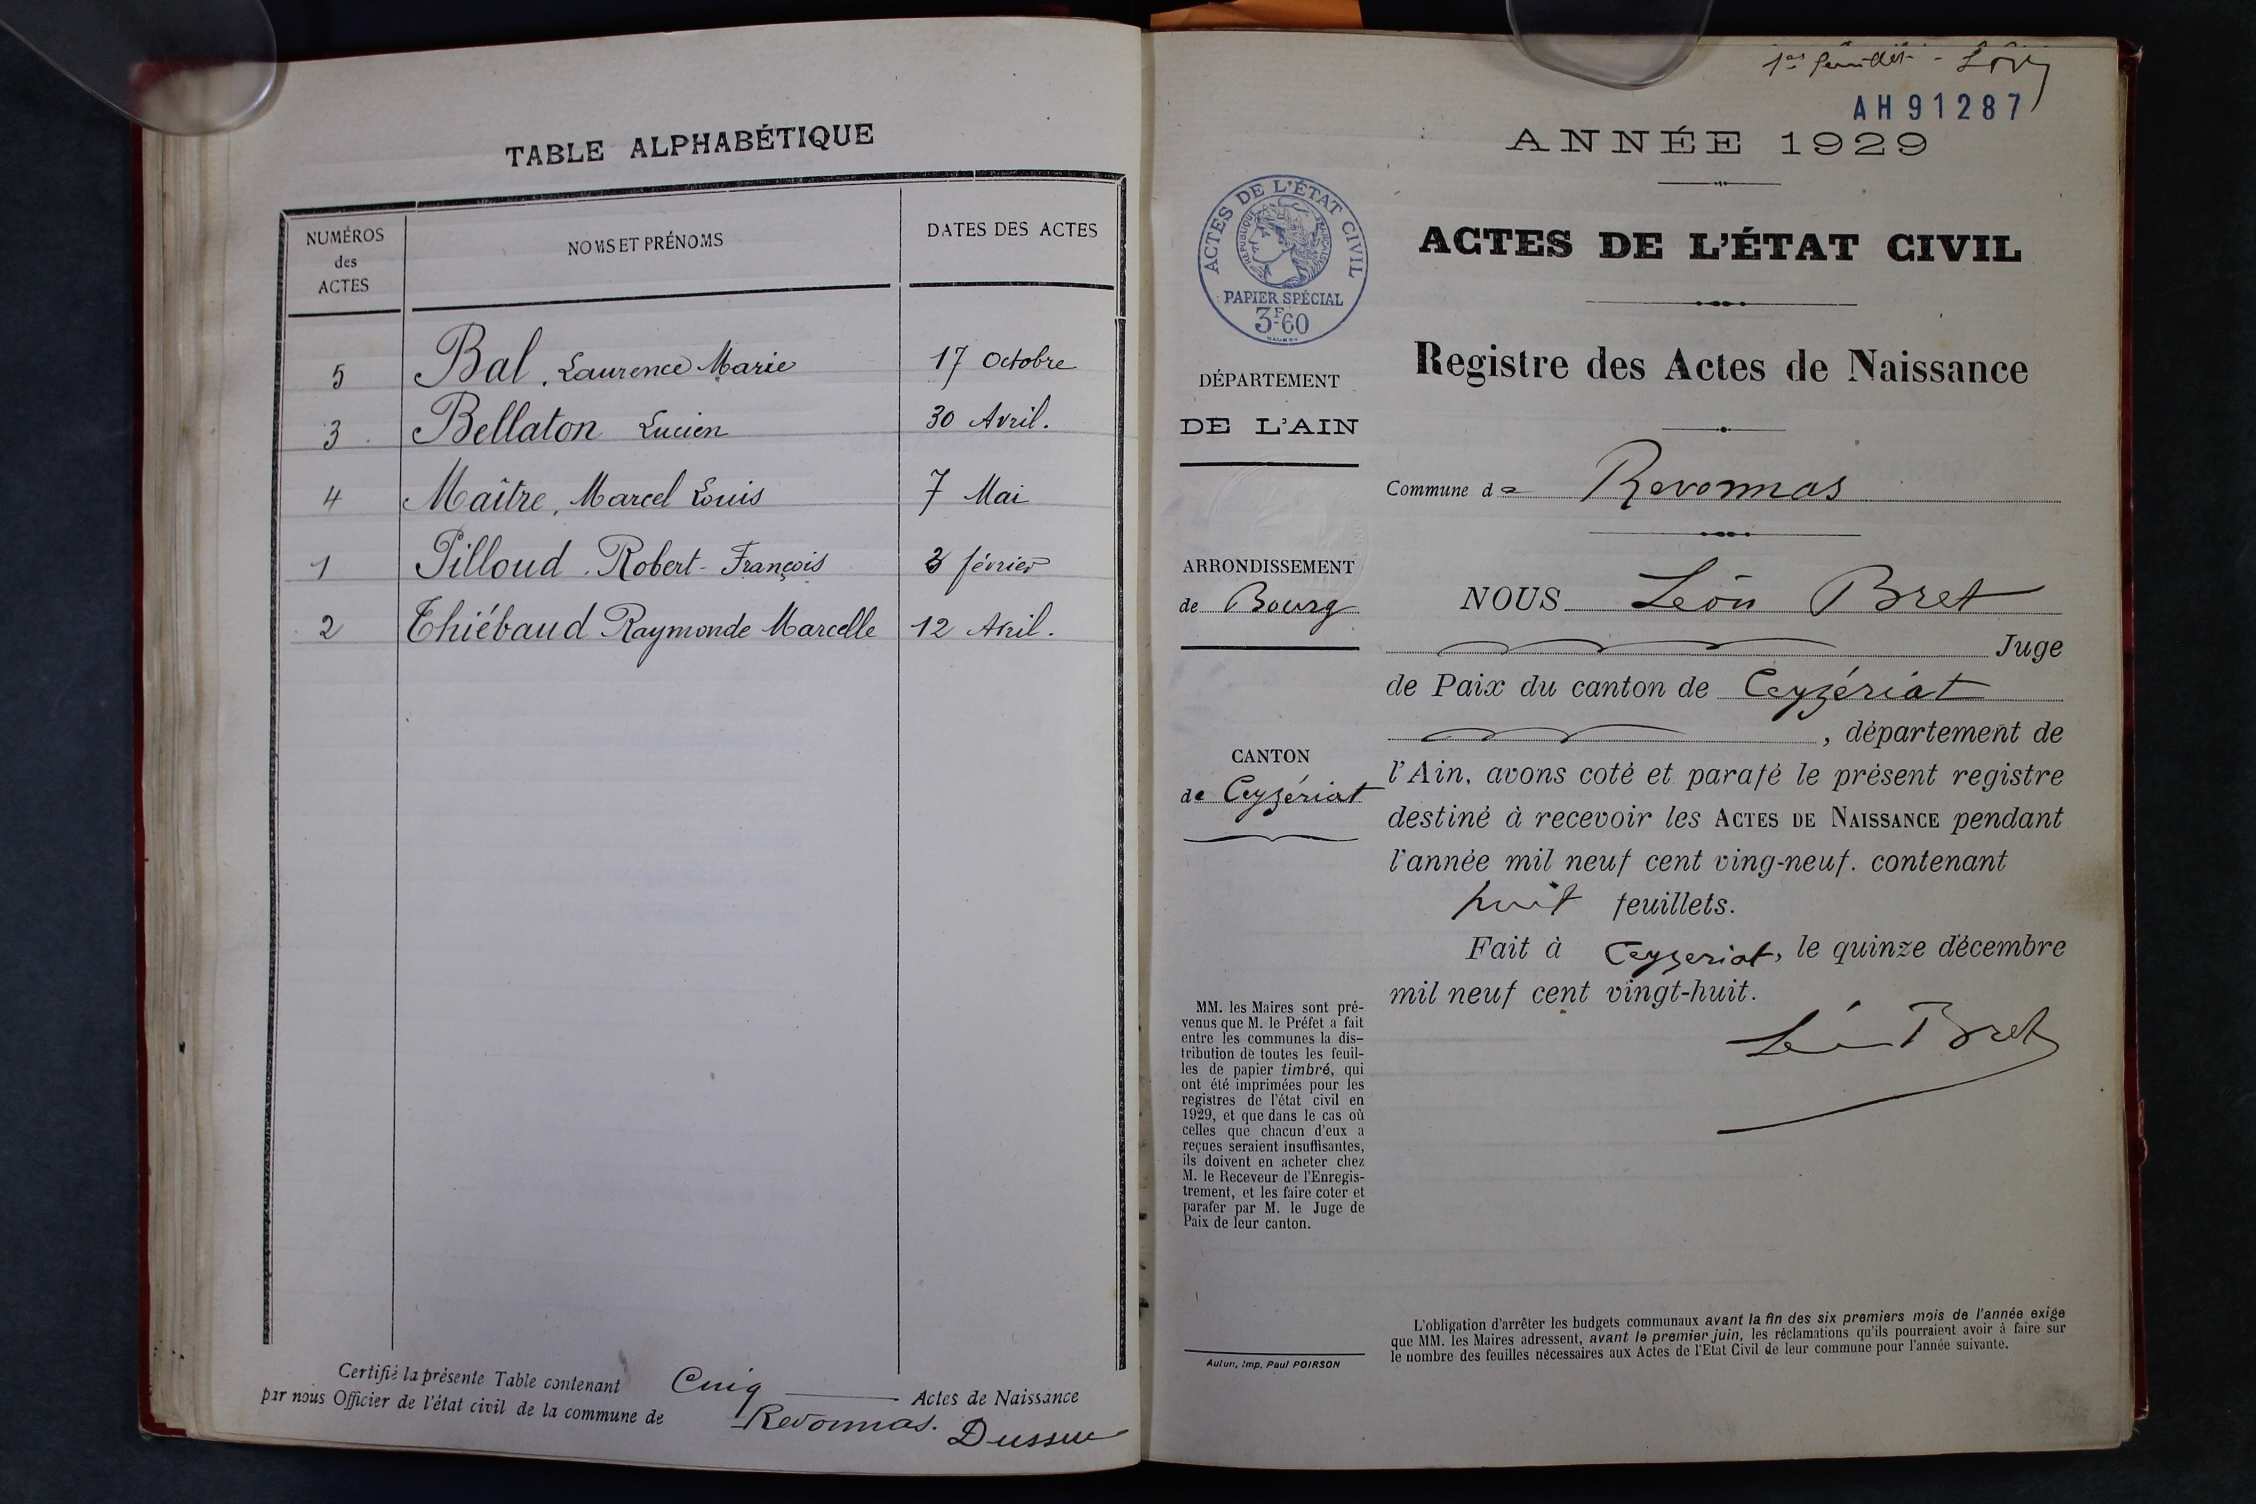 TABLE ALPHABÉTIQUE
NUMÉROS
des
ACTES
NOMS ET PRÉNOMS
DATES DES ACTES
5 Bal, Laurence Marie 17 Octobre
3 Bellaton Lucien 30 Avril.
4 Maître, Marcel Louis 7 Mai
1 Pilloud Robert-François 3 février
2 Thiébaud Raymonde Marcelle 12 Avril.
Certifié la présente Table contenant Cinq Actes de Naissance
par nous Officier de l'état civil de la commune de Revonnas.
1er feuillet -
AH91287
ANNÉE 1929
ACTES DE L'ÉTAT CIVIL
RÉPUBLIQUE FRANÇAISE
PAPIER SPÉCIAL
3F60
ACTES DE L'ÉTAT CIVIL
Registre des Actes de Naissance
DÉPARTEMENT
DE L'AIN
ARRONDISSEMENT
de Bourg
CANTON
de Ceyzériat
Commune de Revonnas
NOUS Léon Bret
Juge
de Paix du canton de Ceyzériat
, département de
l'Ain, avons coté et parafé le présent registre
destiné à recevoir les ACTES DE NAISSANCE pendant
l'année mil neuf cent ving-neuf. contenant
huit feuillets.
Fait à Ceyzeriat, le quinze décembre
mil neuf cent vingt-huit.
Léon Bret
MM. les Maires sont pré-
venus que M. le Préfet a fait
entre les communes la dis-
tribution de toutes les feuil-
les de papier timbré, qui
ont été imprimées pour les
registres de l'état civil en
1929, et que dans le cas où
celles que chacun d'eux a
reçues seraient insuffisantes,
ils doivent en acheter chez
M. le Receveur de l'Enregis-
trement, et les faire coter et
parafer par M. le Juge de
Paix de leur canton.
Autun, Imp. Paul POIRSON
L'obligation d'arrêter les budgets communaux avant la fin des six premiers mois de l'année exige
que MM. les Maires adressent, avant le premier juin, les réclamations qu'ils pourraient avoir à faire sur
le nombre des feuilles nécessaires aux Actes de l'Etat Civil de leur commune pour l'année suivante.